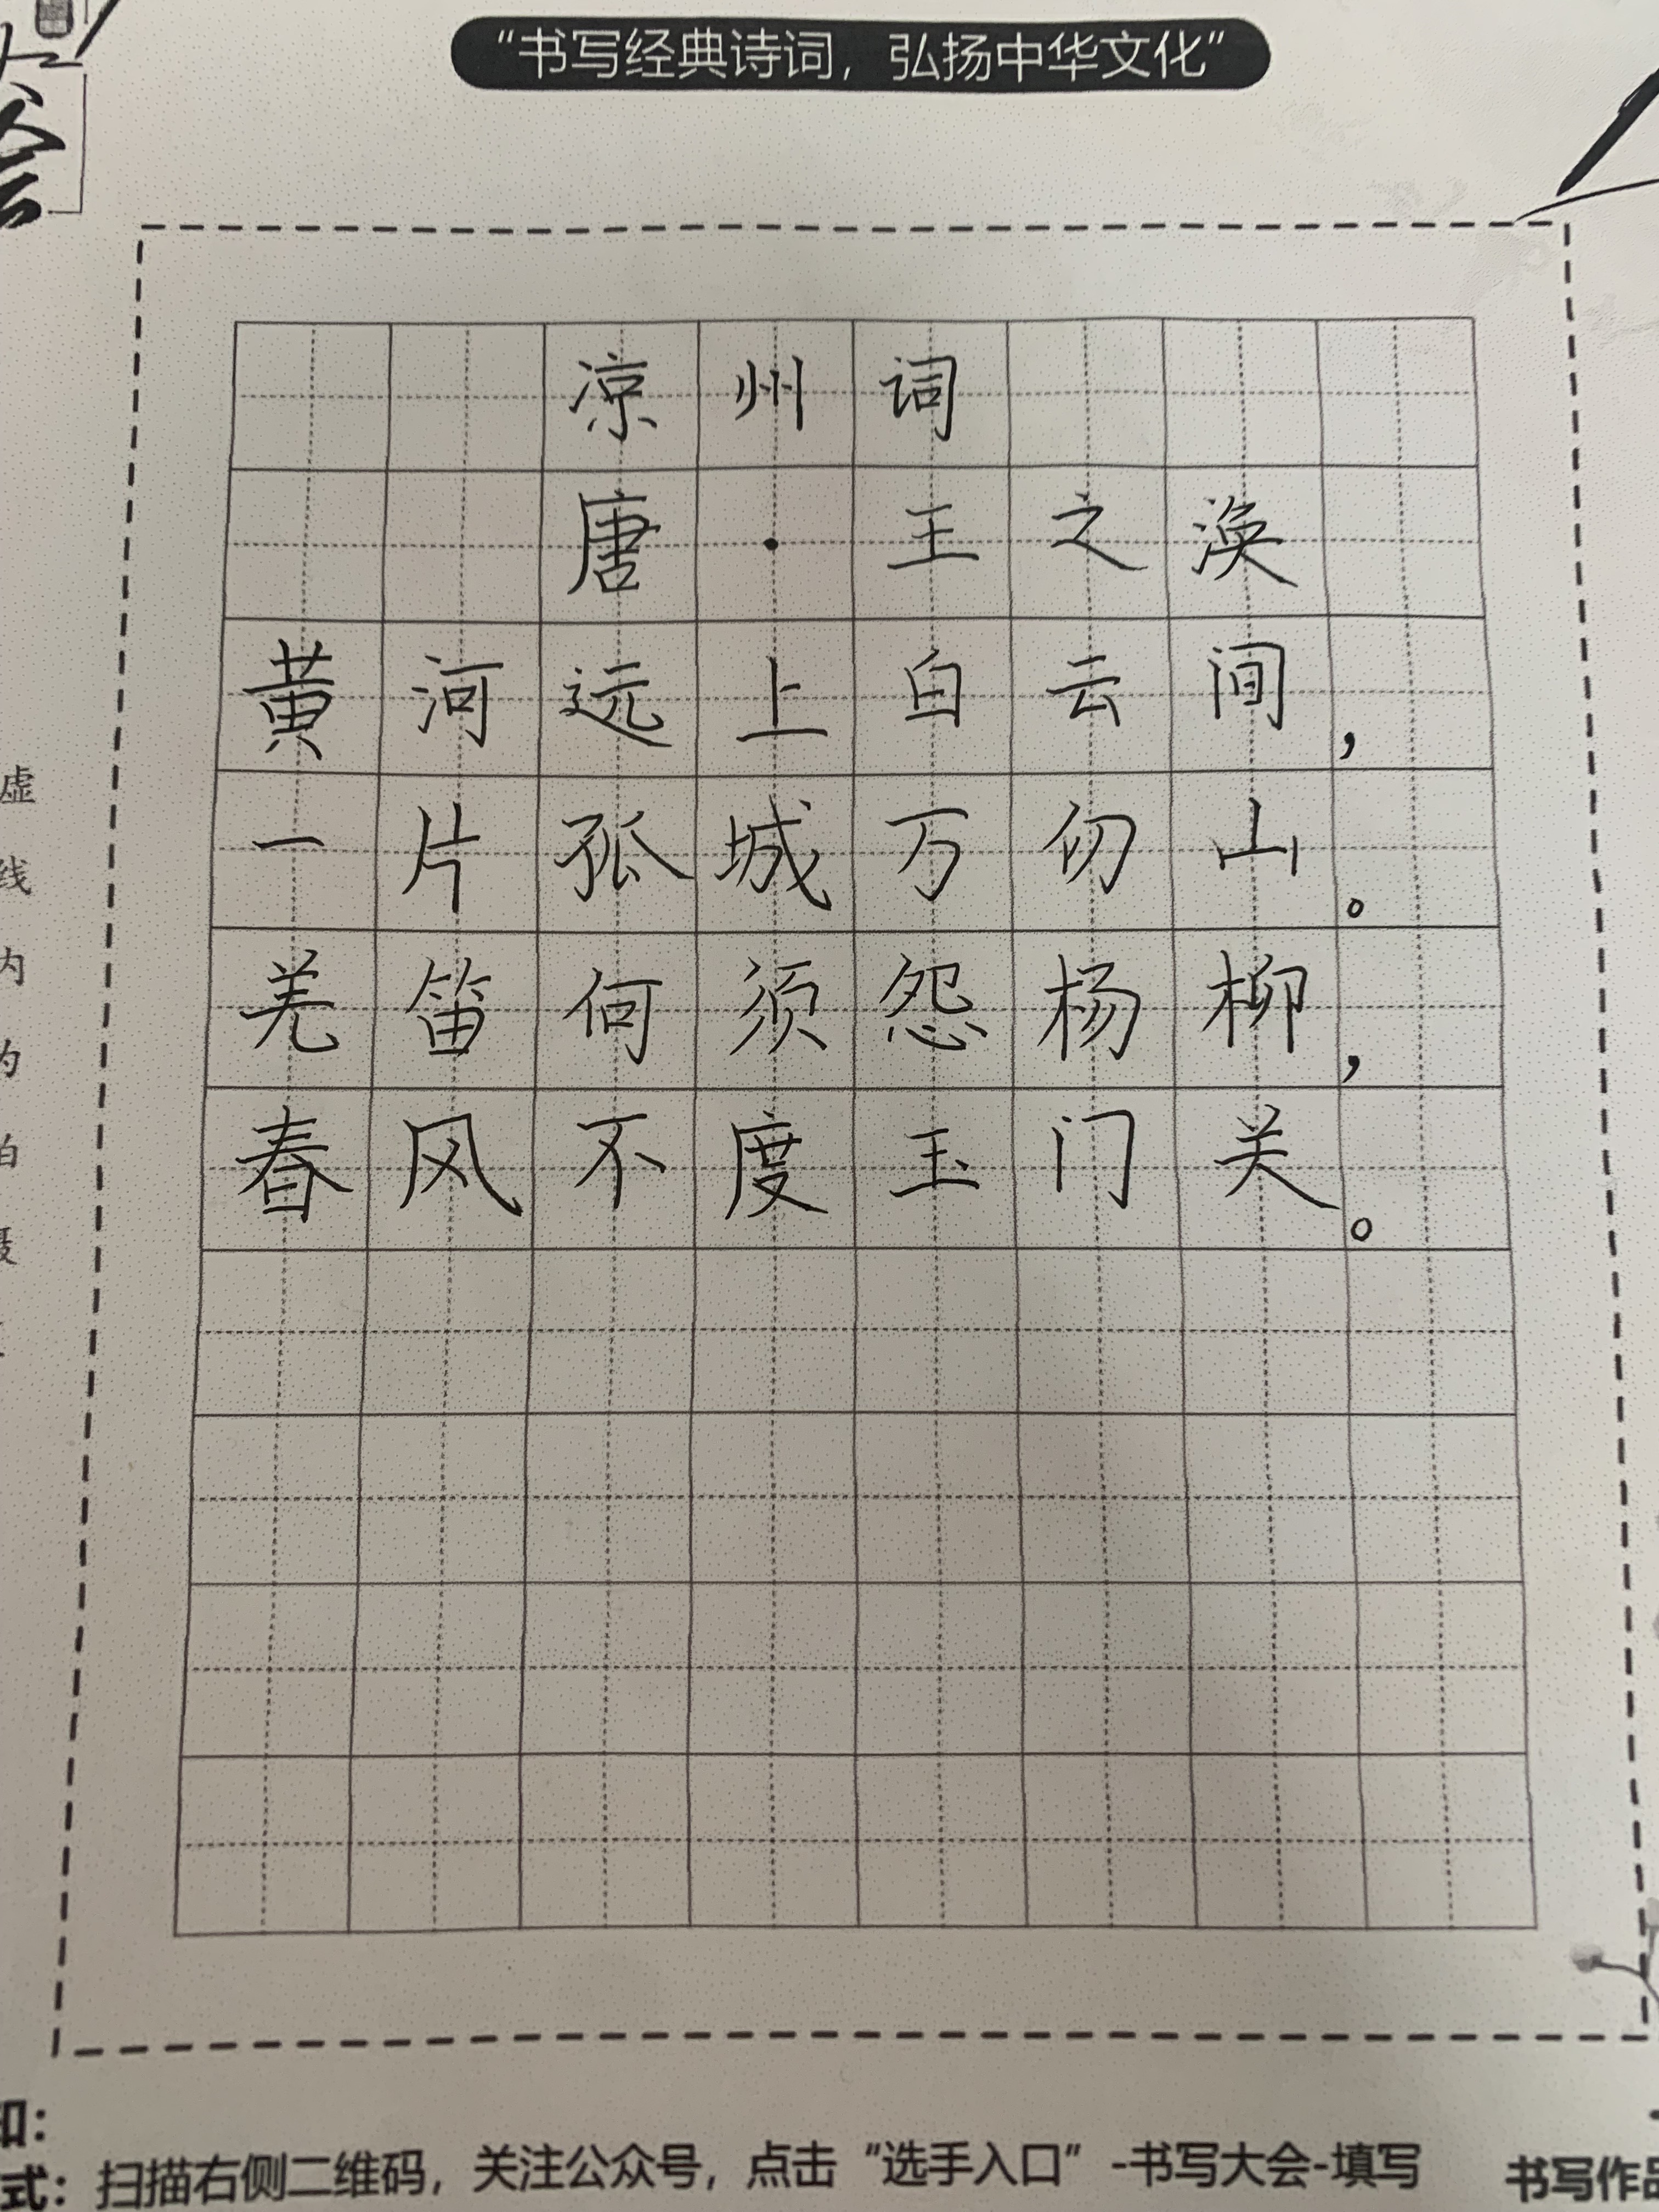 “书写经典诗词，弘扬中华文化”
会
凉州词
唐·王之涣
黄河远上白云间，
一片孤城万仞山。
羌笛何须怨杨柳，
春风不度玉门关。
虚
线
内
的
拍
摄
知：
式：扫描右侧二维码，关注公众号，点击“选手入口”-书写大会-填写
书写作品